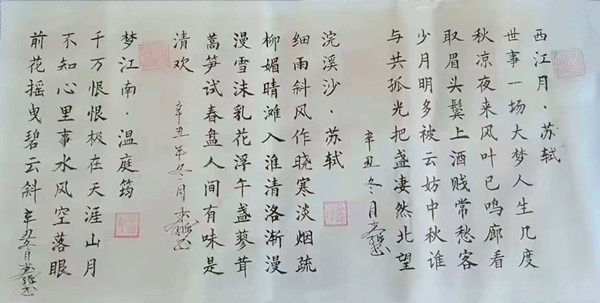 西江月·苏轼
世事一场大梦人生几度
秋凉夜来风叶已鸣廊看
取眉头鬓上酒贱常愁客
少月明多被云妨中秋谁
与共孤光把盏凄然北望
辛丑冬月
浣溪沙·苏轼
细雨斜风作晓寒淡烟疏
柳媚晴滩入淮清洛渐漫
漫雪沫乳花浮午盏蓼茸
蒿笋试春盘人间有味是
清欢
辛丑年冬月
梦江南·温庭筠
千万恨恨极在天涯山月
不知心里事水风空落眼
前花摇曳碧云斜 辛丑冬月